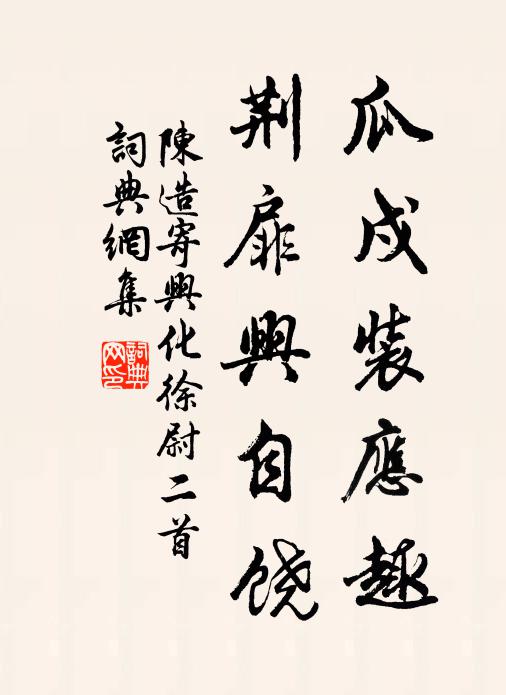 瓜戍裝應趣
荆扉興自饶
陳造寄興化徐尉二首
詞典網集
詞典
网印